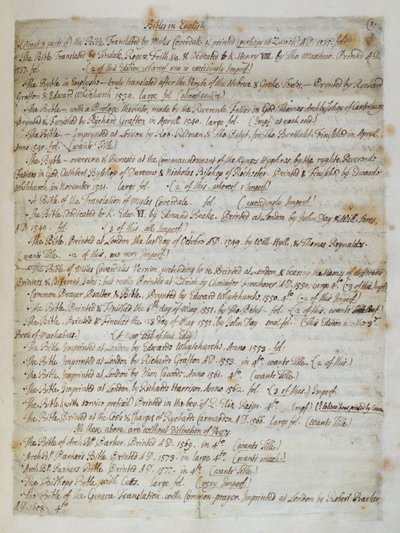 Bibles in English. (1.
A Great part of the Bible Translated by Myles Coverdale & printed perhaps at Zurich AD. 1535. fol.
The Bible Translated by Tindale, Rogers, Frith &c. & Dedicated to K. Henry VIII. by Tho Matthew. Printed AD.
1537. fol. (2 of this Edition, whereof one is exceedingly Imperf.)
The Byble in Englyshe - truly translated after the Veryte of the Hebrue & Greke Textes, - Prynted by Rychard
Grafton & Edward Whitchurch 1539. large fol.
The Byble - with a Prologe therinto, made by the Reverende Father in God Thomas Archbysshop of Canterbury
Prynted & Fynished by Richard Grafton in April 1540. large fol. (Imp. at each end)
The Byble - Imprinted at London by Rob. Redman & Tho. Petyt, for Tho Berthelet. Finished in Apryll
Anno 1540. fol. (wants Title)
The Byble - oversene & Perused at the commaundement of the Kynges Hyghnes, by the ryghte Reverende
Fathers in God Cuthbert Bysshop of Duresme & Nicholas Bisshop of Rochester. Printed & Finisshed by Edwarde
Whitchurch in November 1541. large fol. (2 of this, whereof 1 Imperf.)
A Bible of the Translation of Myles Coverdale. fol. (exceedingly Imperf.)
The Bible Dedicated to K. Edw. VI. by Edmunde Becke. Printed at London by John Day & Will Seres.
AD. 1549. fol. (2 of this, all Imperf.)
The Bible Printed at London the last Day of October AD. 1549. by Will. Hyll, & Thomas Reynaldes.
(wants Title. 2 of this, one very Imperf.)
The Bible of Miles Coverdale's Version, pretending to be Printed at London & bearing the Names of different
Printers & Different Dates: but really Printed at Zurich by Christofer Froschover AD. 1550. large 4to
Common Prayer, Psalter & Bible. Prynted by Edward Whytchurche, 1550. 4to (2 of this Imperf.)
The Bible Printed & Finished the 6th day of May 1551. by Tho. Petyt. fol.
The Bible, Printed & Finished the 23 day of May 1551. by John Day. and fol. (This Edition has the 3d
Book of Machabees)
The Bible Imprinted at London by Edwarde Whytchurche Anno 1553. fol.
The Bible Imprinted at London by Richard Grafton AD. 1553. in 4to. wants Title. (2 of this)
The Bible Imprinted at London by Jhon Cawod. Anno 1561. 4to (wants Title.)
The Bible Imprinted at London by Richarde Harrison Anno 1562. fol. (3 of these, Imperf.)
The Bible Printed at the Costs & Charges of Rycharde Carmarden. AD. 1566. large fol. (wants Title)
All these above are without Distinction of Verses
The Bible of Archbp. Parker. Printed AD. 1569. in 4to. (wants Title.)
Archbp. Parkers Bible Printed AD. 1573. in large 4to. (wants much.)
Archbp. Parkers Bible. Printed AD. 1577. in 4to (wants Title.)
The Bisshops Bible with Cutts. large fol. (very Imperf.)
The Bible of the Geneva Translation, with Common-prayer. Imprinted at London by Robert Barker,
AD. 1605. 4to